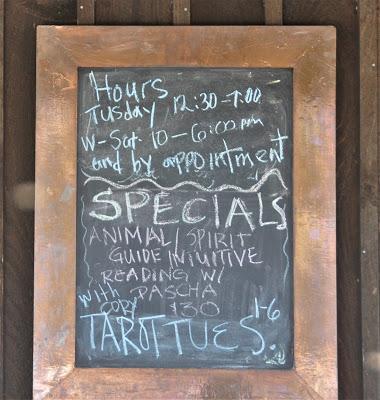 Hours
Tusday 12:30-7:00
W-Sat. 10-6:00pm
and by appointment
SPECIALS
ANIMAL/SPIRIT
GUIDE INTUITIVE
READING W/
PASCHA
$30
with
CORY
TAROT TUES. 1-6